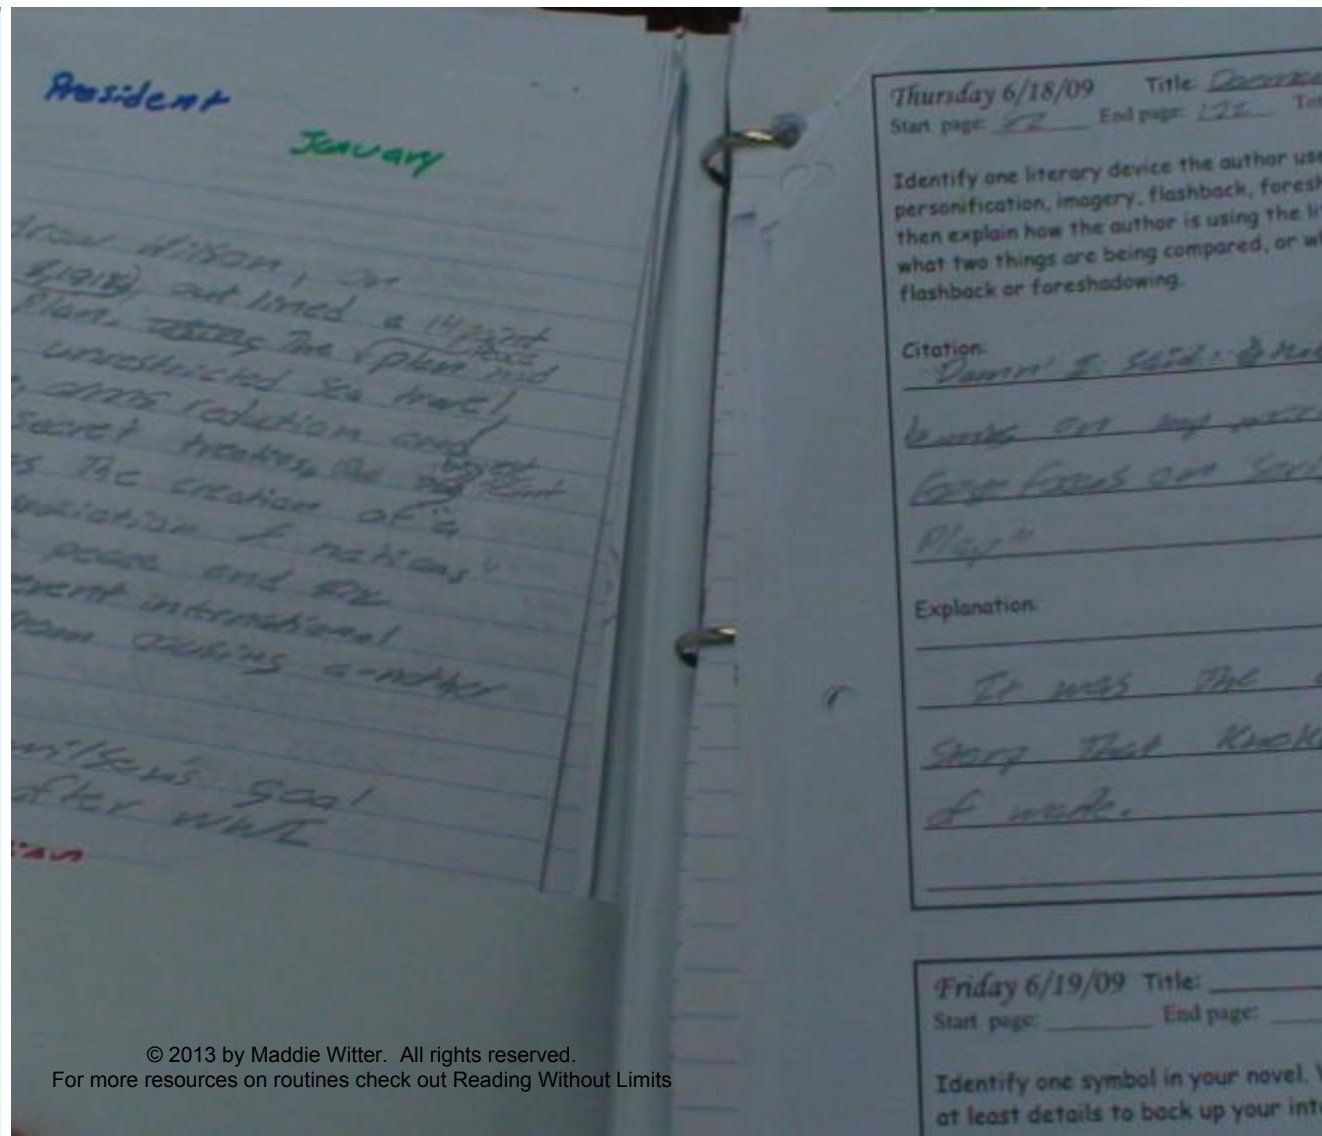 President
January
drow Wilson, on
8, 1918) out lined a 14 point
Plan. The plan had
peace
unrestricted sea travel,
arms reduction and
secret treaties, the biggest
The creation of a
sociation of nations"
peace and
event international
from causing another
wilson's goal
after WWI
Thursday 6/18/09 Title:
Start page: 82 End page: 122
Identify one literary device the author use
personification, imagery, flashback, foresh
then explain how the author is using the li
what two things are being compared, or w
flashback or foreshadowing.
Citation:
Damn! I said!
on my
focus on
Play"
Explanation:
It was The
Story That
of
Friday 6/19/09 Title:
Start page: End page:
Identify one symbol in your novel.
at least details to back up your inte
© 2013 by Maddie Witter. All rights reserved.
For more resources on routines check out Reading Without Limits